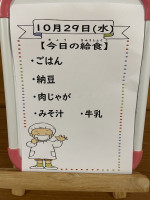 10月29日(水)
【今日の給食】
・ごはん
・納豆
・肉じゃが
・みそ汁　・牛乳